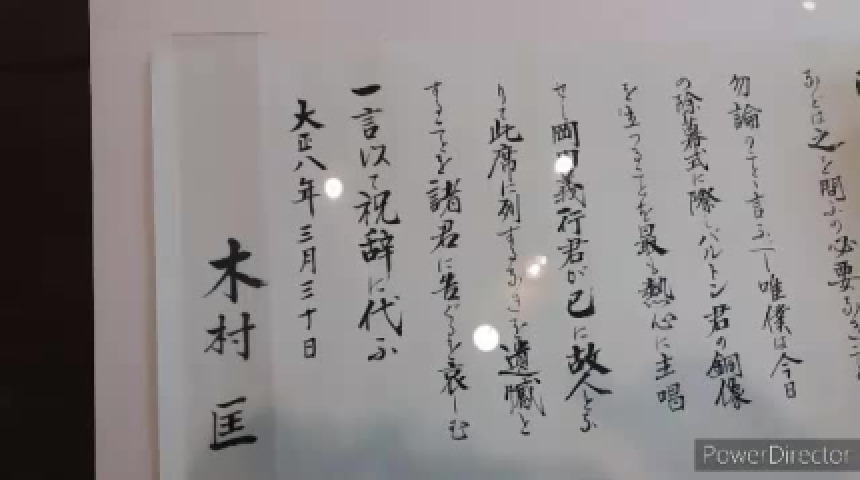 なとは之を問ふの必要なきこと
勿論のことと言ふべし唯僕は今日
の除幕式に際しバルトン君の銅像
を立つることを最も熱心に主唱
せし岡田義行君が已に故人となり
て此席に列するなきを遺憾と
することを諸君に告ぐるを哀しむ
一言以て祝辞に代ふ
大正八年三月三十日
木村匡
PowerDirector